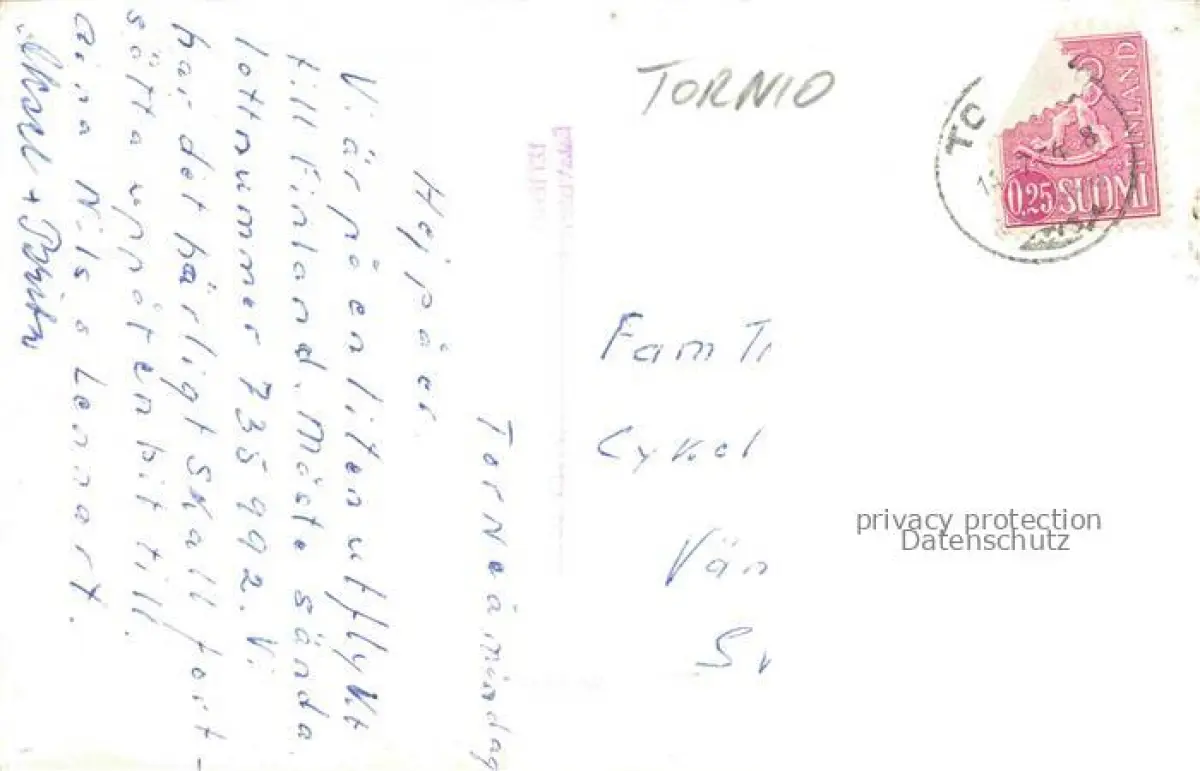 Torneå måndag
Hej på er.
Vi är på en liten utflykt
till Finland. Måste sända
lottnummer 735992. Vi
har det härligt skall fort-
sätta uppåt en bit till.
Nils o Lennart.
+ Britta
TORNIO
TO
FINLAND
0,25 SUOMI
Fam
Cykel
Vän
privacy protection
Datenschutz